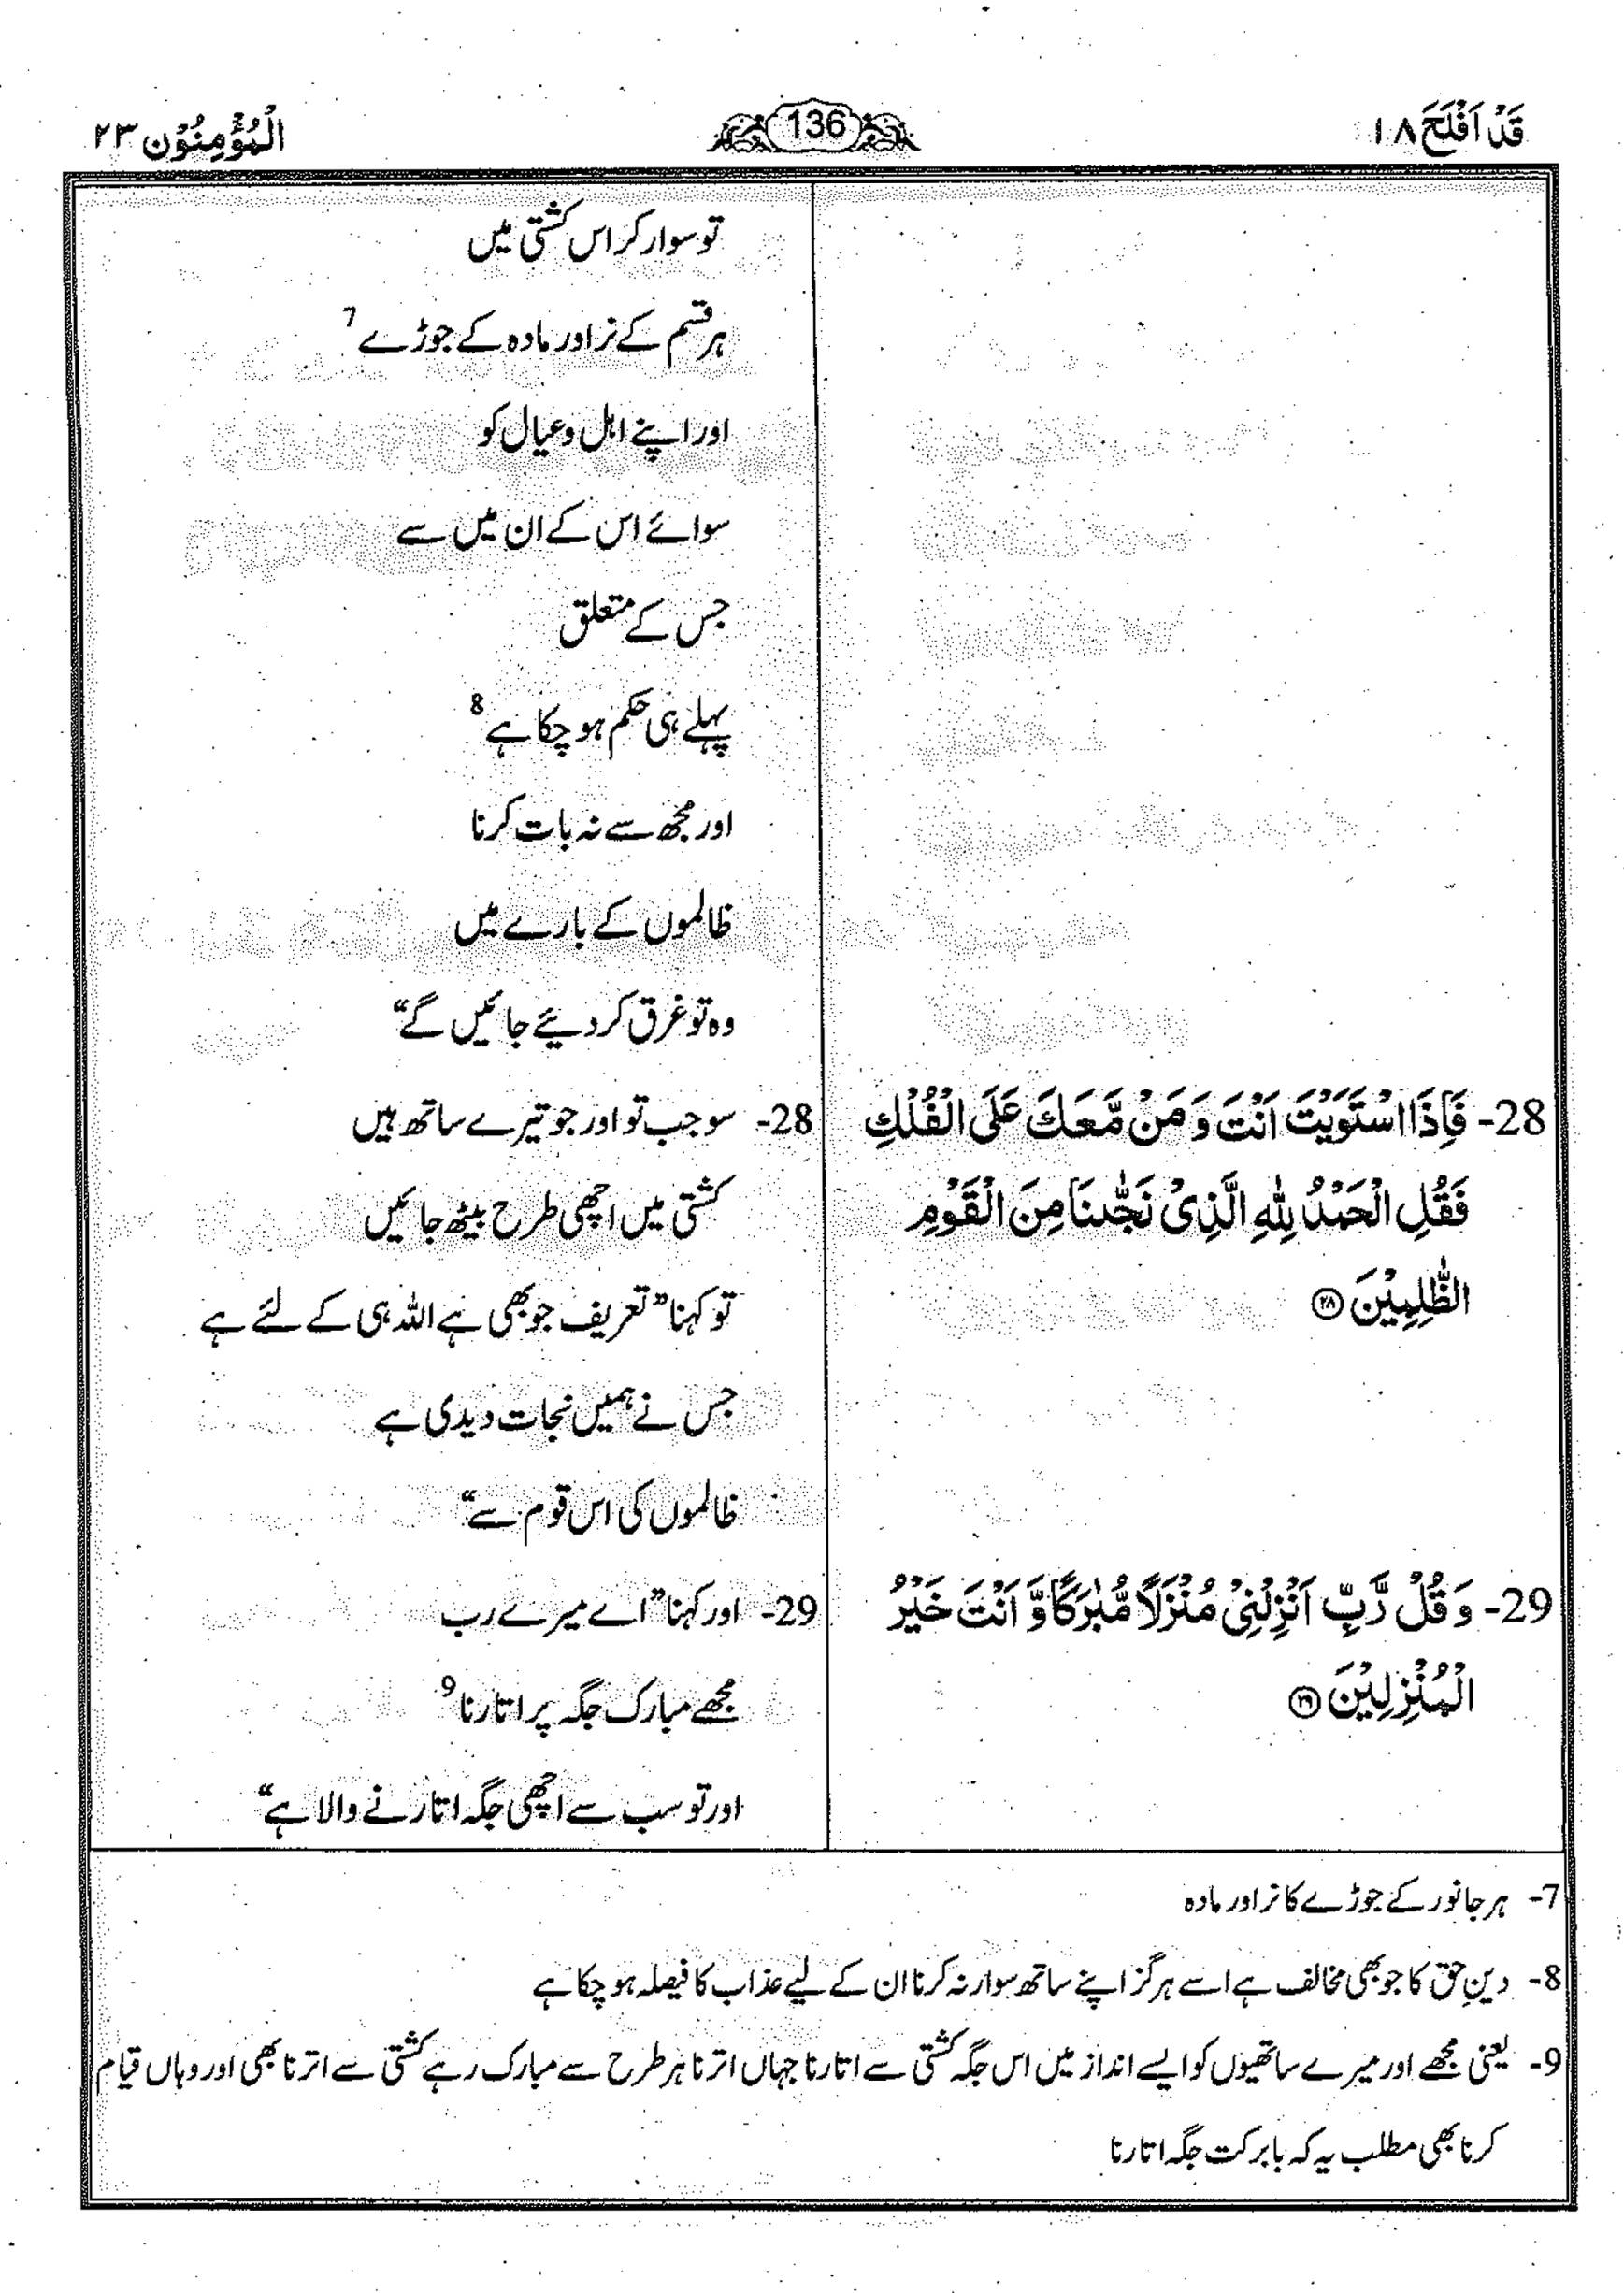 قَدْ اَفْلَحَ ۱۸
136
الْمُؤْمِنُوْن ۲۳
تو سوار کر اس کشتی میں
ہر قسم کے نر اور مادہ کے جوڑے 7
اور اپنے اہل و عیال کو
سوائے اس کے ان میں سے
جس کے متعلق
پہلے ہی حکم ہو چکا ہے 8
اور مجھ سے نہ بات کرنا
ظالموں کے بارے میں
وہ تو غرق کر دیئے جائیں گے“
28- فَاِذَا اسْتَوَيْتَ اَنْتَ وَ مَنْ مَّعَكَ عَلَى الْفُلْكِ
فَقُلِ الْحَمْدُ لِلّٰهِ الَّذِىْ نَجّٰىنَا مِنَ الْقَوْمِ
الظّٰلِمِيْنَ ۲۸
28- سو جب تو اور جو تیرے ساتھ ہیں
کشتی میں اچھی طرح بیٹھ جائیں
تو کہنا ”تعریف جو بھی ہے اللہ ہی کے لئے ہے
جس نے ہمیں نجات دیدی ہے
ظالموں کی اس قوم سے“
29- وَ قُلْ رَّبِّ اَنْزِلْنِىْ مُنْزَلًا مُّبٰرَكًا وَّ اَنْتَ خَيْرُ
الْمُنْزِلِيْنَ ۲۹
29- اور کہنا ”اے میرے رب
مجھے مبارک جگہ پر اتارنا 9
اور تو سب سے اچھی جگہ اتارنے والا ہے“
7- ہر جانور کے جوڑے کا نر اور مادہ
8- دینِ حق کا جو بھی مخالف ہے اسے ہرگز اپنے ساتھ سوار نہ کرنا ان کے لیے عذاب کا فیصلہ ہو چکا ہے
9- یعنی مجھے اور میرے ساتھیوں کو ایسے انداز میں اس جگہ کشتی سے اتارنا جہاں اترنا ہر طرح سے مبارک رہے کشتی سے اترنا بھی اور وہاں قیام
کرنا بھی مطلب یہ کہ بابرکت جگہ اتارنا